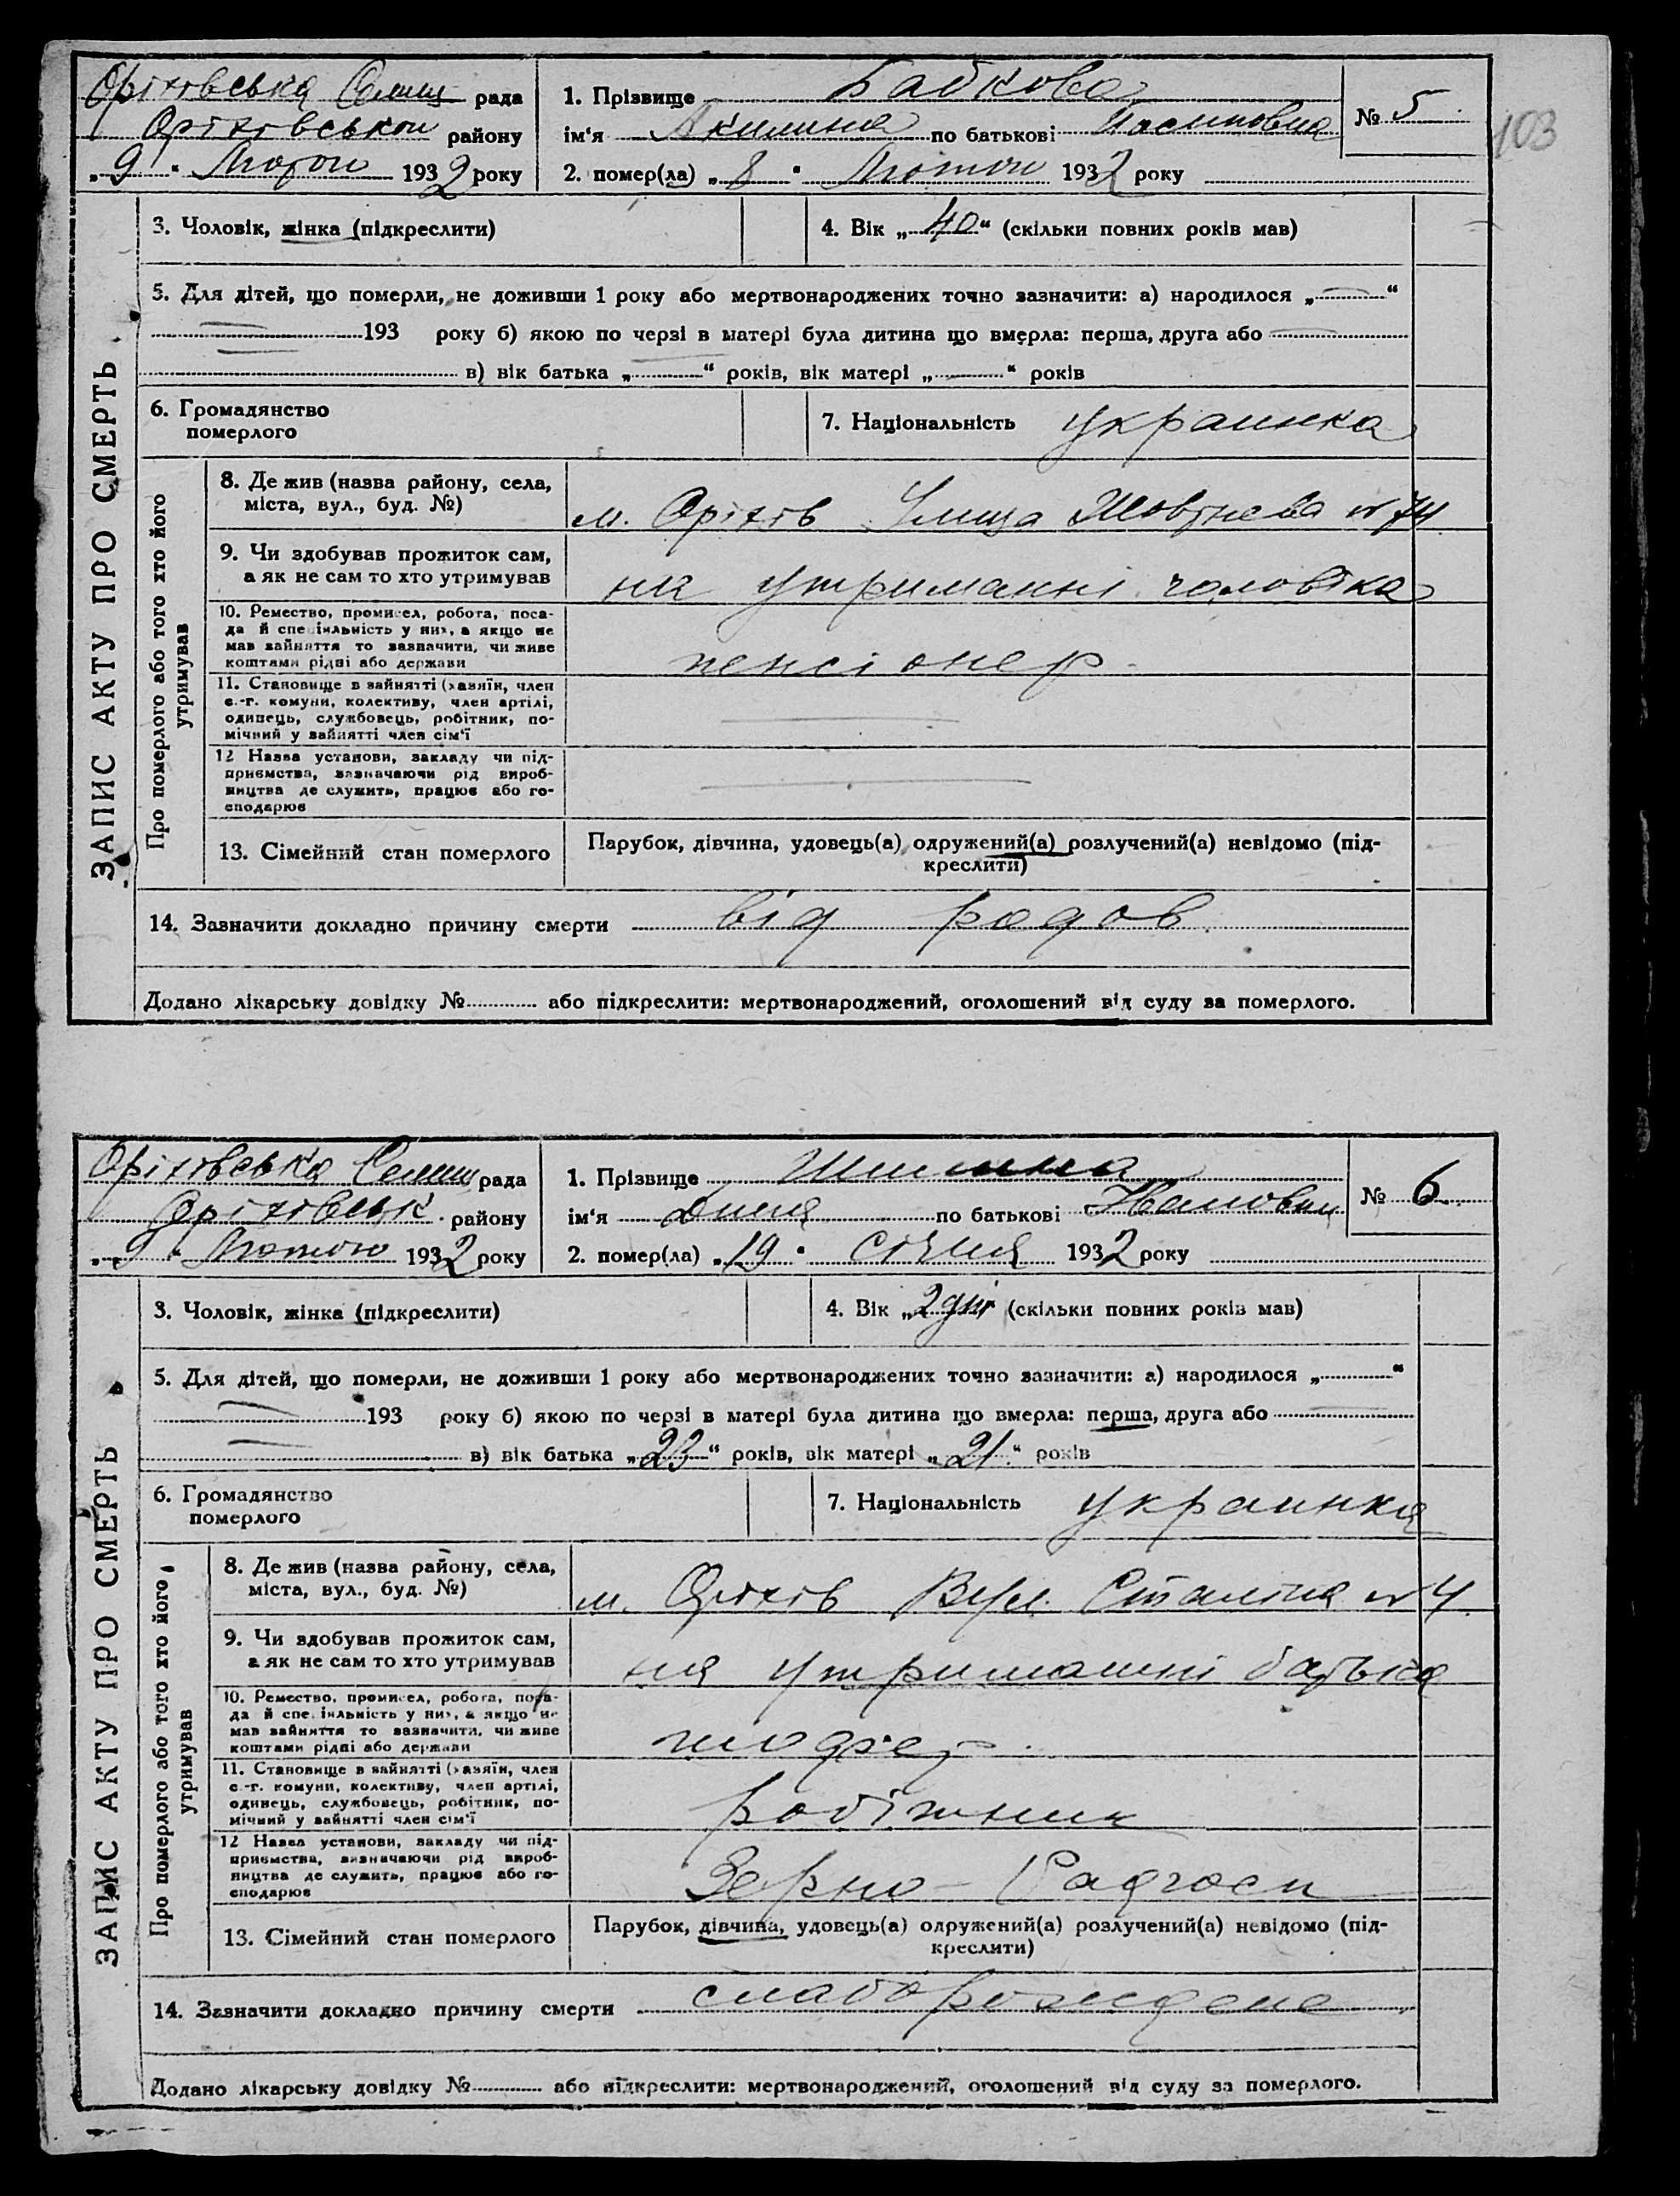 Оріхівська Селищ рада
Оріхівськои району
„ 9 “ Лютого 1932 року
1. Прізвище Бабкова
ім'я Акилина по батькові
2. помер(ла) „ 8 “ Лютого 1932 року
№ 5
103
ЗАПИС АКТУ ПРО СМЕРТЬ
3. Чоловік, жінка (підкреслити)
4. Вік „ 40 “ (скільки повних років мав)
5. Для дітей, що померли, не доживши 1 року або мертвонароджених точно зазначити: а) народилося „ — “
— 193 року б) якою по черзі в матері була дитина що вмерла: перша, друга або —
в) вік батька „ “ років, вік матері „ “ років
6. Громадянство
померлого
7. Національність украинка
Про померлого або того хто його
утримував
8. Де жив (назва району, села,
міста, вул., буд. №)
м. Оріхів Улица Жовтнева № 74
9. Чи здобував прожиток сам,
а як не сам то хто утримував
на утриманні чоловіка
10. Ремество, промисел, робота, поса-
да й спеціяльність у них, а якщо не
мав зайняття то зазначити, чи живе
коштами рідні або держави
пенсіонер
11. Становище в зайнятті (хазяїн, член
с.-г. комуни, колективу, член артілі,
одинець, службовець, робітник, по-
мічний у зайнятті член сім'ї
—
12 Назва установи, закладу чи під-
приємства, зазначаючи рід вироб-
ництва де служить, працює або го-
сподарює
—
13. Сімейний стан померлого
Парубок, дівчина, удовець(а) одружений(а) розлучений(а) невідомо (під-
креслити)
14. Зазначити докладно причину смерти від родов
Додано лікарську довідку № або підкреслити: мертвонароджений, оголошений від суду за померлого.
Оріхівська Селищ рада
Оріхівськ. району
„ 9 “ Лютого 1932 року
1. Прізвище
ім'я по батькові Ивановна
2. помер(ла) „ 19 “ січня 1932 року
№ 6
ЗАПИС АКТУ ПРО СМЕРТЬ
3. Чоловік, жінка (підкреслити)
4. Вік „ 2 дні (скільки повних років мав)
5. Для дітей, що померли, не доживши 1 року або мертвонароджених точно зазначити: а) народилося „ “
— 193 року б) якою по черзі в матері була дитина що вмерла: перша, друга або —
— в) вік батька „ 23 “ років, вік матері „ 21 “ років
6. Громадянство
померлого
7. Національність украинка
Про померлого або того хто його
утримував
8. Де жив (назва району, села,
міста, вул., буд. №)
м. Оріхів Вул. Сталіна № 4
9. Чи здобував прожиток сам,
а як не сам то хто утримував
на утриманні батька
10. Ремество, промисел, робота, поса-
да й спеціяльність у них, а якщо не
мав зайняття то зазначити, чи живе
коштами рідні або держави
11. Становище в зайнятті (хазяїн, член
с.-г. комуни, колективу, член артілі,
одинець, службовець, робітник, по-
мічний у зайнятті член сім'ї
робітник
12 Назва установи, закладу чи під-
приємства, зазначаючи рід вироб-
ництва де служить, працює або го-
сподарює
Зерно - Радгосп
13. Сімейний стан померлого
Парубок, дівчина, удовець(а) одружений(а) розлучений(а) невідомо (під-
креслити)
14. Зазначити докладно причину смерти слаборождене
Додано лікарську довідку № або підкреслити: мертвонароджений, оголошений від суду за померлого.